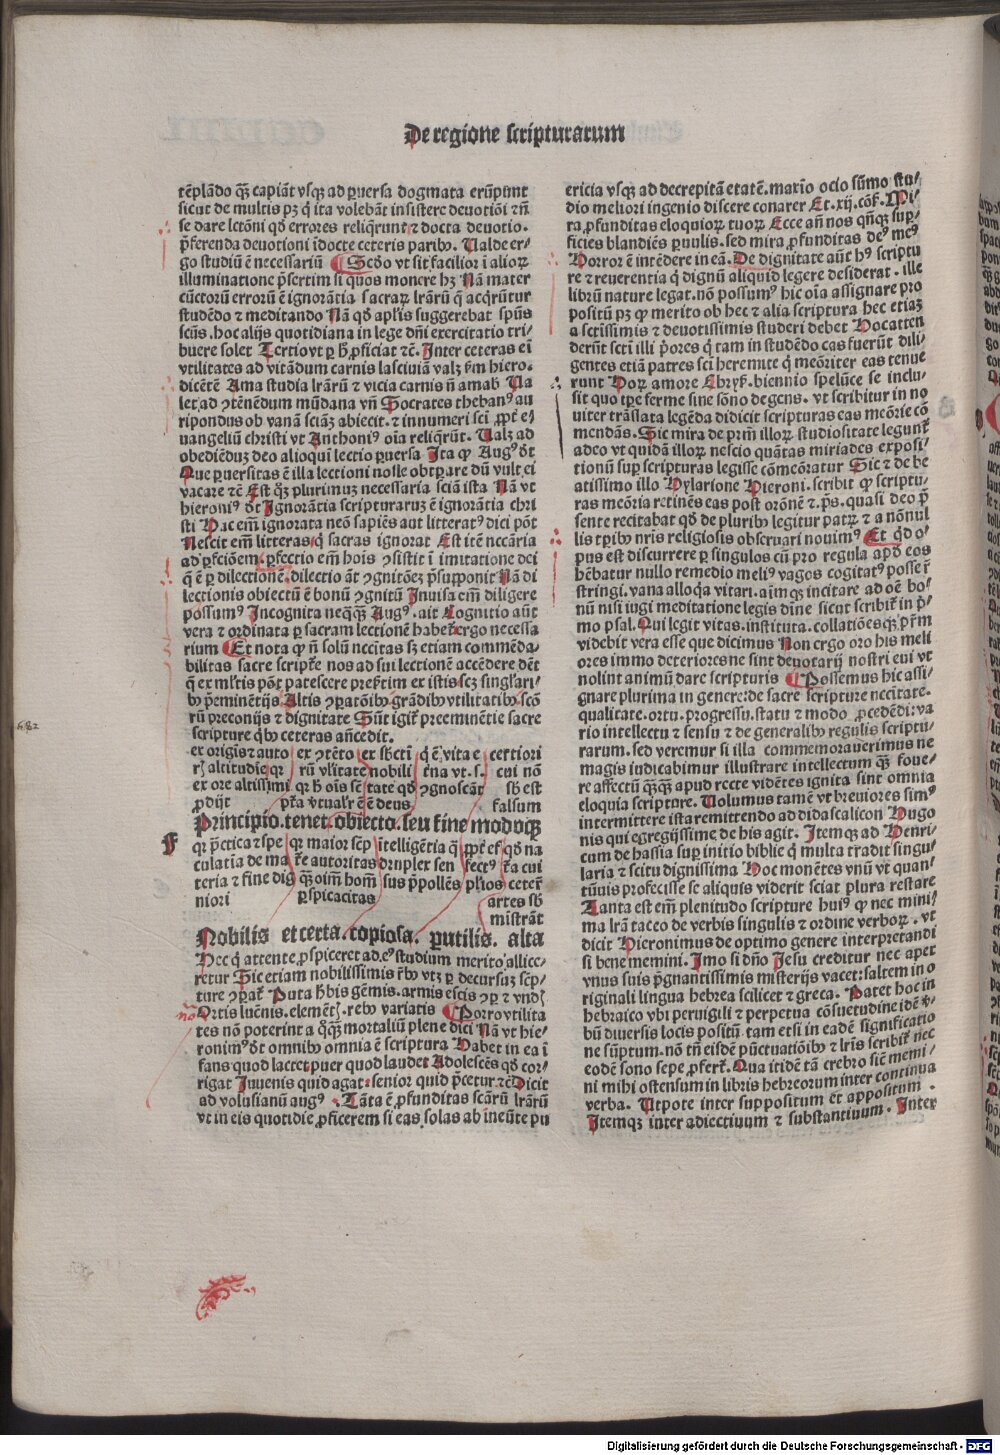 De regione scripturarum
tẽplãdo q̃ȝ capiãt vsqȝ ad ꝑuersa dogmata erũpunt
sicut de multis pȝ q̇ ita volebãt insistere deuotiõi ⁊ñ
se dare lctõni qḋ errores reliq̃runt ⁊ docta deuotio.
p̃ferenda deuotioni ĩdocte ceteris paribꝰ. Ualde er-
go studiũ ẽ necessariũ Scḋo vt sit facilior ĩ alioꝝ
illuminatione p̃sertim si quos monere hȝ Nã mater
cũctorũ errorũ ẽ ignorãtia sacraꝝ lrãrũ q̇ acq̃rũtur
studẽdo ⁊ meditando Nã qḋ apl̃is suggerebat spũs
scũs. hoc alijs quotidiana in lege dñi exercitatio tri-
buere solet Tertio vt ꝑ ħ ꝓficiat ⁊c̃. Inter ceteras eĩ
vtilitates ad vitãdum carnis lasciuiã valȝ ẜm hiero.
dicẽtẽ Ama studia lrãrũ ⁊ vicia carnis ñ amab Ua
let ad ꝯtẽnẽdum mũdana vñ Socrates thebanꝰ au
ri pondus ob vanã sciãȝ abiecit. ⁊ innumeri sci ꝓpt̃ eꝰ
uangeliũ christi vt Anthoniꝰ oĩa reliq̃rũt. Ualȝ ad
obediẽduȝ deo alioqui lectio ꝑuersa Ita ꝙ Augꝰ ðt
Que ꝑuersitas ẽ illa lectioni nolle obtꝑare dũ vult ei
vacare ⁊c̃ Est q̃ȝ plurimuȝ necessaria sciã ista Nã vt
hieroniꝰ ðt Ignorãtia scripturaruȝ ẽ ignorãtia chri
sti Hac em̃ ignorata neõ sapiẽs aut litteratꝰ dici põt
Nescit em̃ litteras q̇ sacras ignorat Est itẽ nec̃cãria
ad ꝑfciõem. ꝑfectio em̃ hois ꝯsistit ĩ imitatione dei
q̇ ẽ ꝑ dilectionẽ. dilectio ãt ꝯgnitõeȝ p̃supponit Nã di
lectionis obiectũ ẽ bonũ ꝯgnitũ Inuisa em̃ diligere
possumꝰ Incognita neq̃q̃ȝ Augꝰ. ait Cognitio aũt
vera ⁊ ordinata ꝑ sacram lectionẽ habet̃ ergo necessa
rium Et nota ꝙ ñ solũ necc̃itas sȝ etiam commẽda-
bilitas sacre script̃e nos ad sui lectionẽ accẽdere dẽt
q̇ ex ml̃tis põt patescere presẽtim ex istis scȝ singl̃ari-
bꝰ p̃eminẽtijs Altis ꝯꝑatõibꝰ grãdibꝰ vtilitatibꝰ scõ
rũ preconijs ⁊ dignitate Sũt igit̃ preeminẽtie sacre
scripture q̇bꝰ ceteras añcedit.
ex origis ⁊ auto ex ꝯtẽto ex sb̃cti q̇ ẽ vita e certiori
altitudie qꝛ rũ vĩtate nobili t̃na vt. s. cui nõ
ex ore altissimi qꝛ ħ ois sẽ tate qḋ ꝯgnoscãt sb̃ est
ꝓdijt pt̃a vtual̃r ẽ ẽ deus falsum
Principio. tenet. obiecto. seu fine modoqȝ
qꝛ p̃ctica ⁊ spe qꝛ maior scẽp ĩtelligẽtia q̇ ꝓpt̃ eſ qḋ na
culatia de ma t̃e autoritas druplex sen fectꝰ t̃a cui
teria ⁊ fine dig q̃ȝ oĩm hom̃ sus p̃pollẽs pħos ceter̃
niori ꝑspicacitas artes sb̃
mistrãt
Nobilis et certa. copiosa. ꝑutilis. alta
Hec q̇ attente ꝓspiceret ad eꝰ studium merito allice-
retur Sic etiam nobilissimis r̃bꝰ vtȝ ꝑ decursaȝ scẽp-
ture ꝯꝑat̃ Puta ħbis gẽmis. armis escis ꝯꝑ ⁊ vnd
Ortis luẽnis. elemẽt. rebꝰ variatis Porro vtilita
tes nõ poterint a q̇q̃ȝ mortaliũ plene dici Nã vt hie-
ronimꝰ ðt omnibꝰ omnia ẽ scriptura Habet in ea ĩ
fans quod lactet puer quod laudet Adolescẽs qḋ cor-
rigat Iuuenis quid agat senior quid p̃cetur ⁊c̃ Dicit
ad volusianũ augꝰ. Tãta ẽ ꝓfunditas scãrũ lrãrũ
vt in eis quotidie ꝓficerem si eas solas ab ineũte pu
ericia vsqȝ ad decrepitã etatẽ. maxĩo ocio sũmo stu-
dio meliori ingenio discere conarer Et. xij. cõf. Mi-
ra ꝓfunditas eloquioꝝ tuoꝝ Ecce añ nos qñqȝ suꝑ-
ficies blandiẽs ꝑuulis. sed mira ꝓfunditas deꝰ meꝰ
Horror ẽ intẽdere in eã. De dignitate aũt hꝰ scriptu
re ⁊ reuerentia q̇ dignũ aliquid legere desiderat. ille
librũ nature legat. nõ possumꝰ hic oĩa assignare pro
positũ pȝ ꝙ merito ob hec ⁊ alia scriptura hec etiaȝ
a sctissimis ⁊ deuotissimis studeri debet Hoc atten
derũt sctĩ illi p̃ores q̇ tam in studẽdo eas fuerũt dili-
gentes etiã patres sci heremite q̇ meõriter eas tenue
runt Horꝝ amore Ebryſ. biennio spelũce se inclu-
sit quo tꝑe ferme sine sõno degens. vt scribitur in no
uiter trãslata legẽda didicit scripturas eas meõrie cõ
mendãs. Sic mira de prim̃ illoꝝ studiositate legunt̃
adeo vt quidã illoꝝ nescio quãtas miriades exposi-
tionũ suꝑ scripturas legisse cõmeõratur Sic ⁊ de be
atissimo illo Hylarione Hieroni. scribit ꝙ scriptu-
ras meõria retinẽs eas post orõnẽ ⁊ p̃s. quasi deo p̃
sente recitabat qḋ de pluribꝰ legitur patꝝ ⁊ a nõnul
lis tꝑibꝰ nr̃is religiosis obseruari nouimꝰ Et q̇ḋ o-
pus est discurrere ꝑ singulos cũ pro regula apḋ eos
hẽbatur nullo remedio meliꝰ vagos cogitatꝰ posse r̃
stringi. vana alloq̃a vitari. aĩmqȝ incitare ad oẽ bo-
nũ nisi iugi meditatione legis dĩne sicut scribit̃ in p̃-
mo psal. Qui legit vitas. instituta. collatiões qȝ pr̃m
videbit vera esse que dicimus Non ergo oro his meli
ores immo deteriores ne sint deuotarij nostri eui vt
nolint animũ dare scripturis Possemus hic assi-
gnare plurima in genere: de sacre scripture nec̃citate-
qualitate. ortu. progressu. statu ⁊ modo ꝓcedẽdi: va
rio intellectu ⁊ sensu ⁊ de generalibꝰ regulis scriptu-
rarum. sed veremur si illa commemorauerimus ne
magis iudicabimur illustrare intellectum q̃ȝ foue-
re affectũ q̃ȝq̃ȝ apud recte vidẽtes ignita sint omnia
eloquia scripture. Uolumus tamẽ vt breuiores simꝰ
intermittere ista remittendo ad didascalicon Hugo
nis qui egregijssime de his agit. Itemqȝ ad Henri-
cum de hassia suꝑ initio biblie q̇ multa tradit singu-
laria ⁊ scitu dignissima Hoc monẽtes vnũ vt quan-
tũuis profecisse se aliquis viderit sciat plura restare
Tanta est em̃ plenitudo scripture huiꝰ ꝙ nec mini-
ma lrã taceo de verbis singulis ⁊ ordine verboꝝ. vt
dicit Hieronimus de optimo genere interpretandi
si bene memini. Imo si dño Jesu creditur nec apex
vnus suis p̃gnantissimis misterijs vacet: saltem in o
riginali lingua hebrea scilicet ⁊ greca. Patet hoc in
hebraico vbi peruigili ⁊ perpetua cõsuetudine idẽ ꝟ-
bũ diuersis locis positũ. tam etsi in eadẽ significatio
ne sũptum. nõ tñ eisdẽ pũctuatiõibꝰ ⁊ lr̃is scribit̃ nec
eodẽ sono sepe ꝓfert̃. Qua itidẽ tã crebro siẽ memi-
ni mihi ostensum in libris hebreorum inter continua
verba. Utpote inter suppositum et appositum.
Itemqȝ inter adiectiuum ⁊ substantiuum. Inter
Digitalisierung gefördert durch die Deutsche Forschungsgemeinschaft - DFG